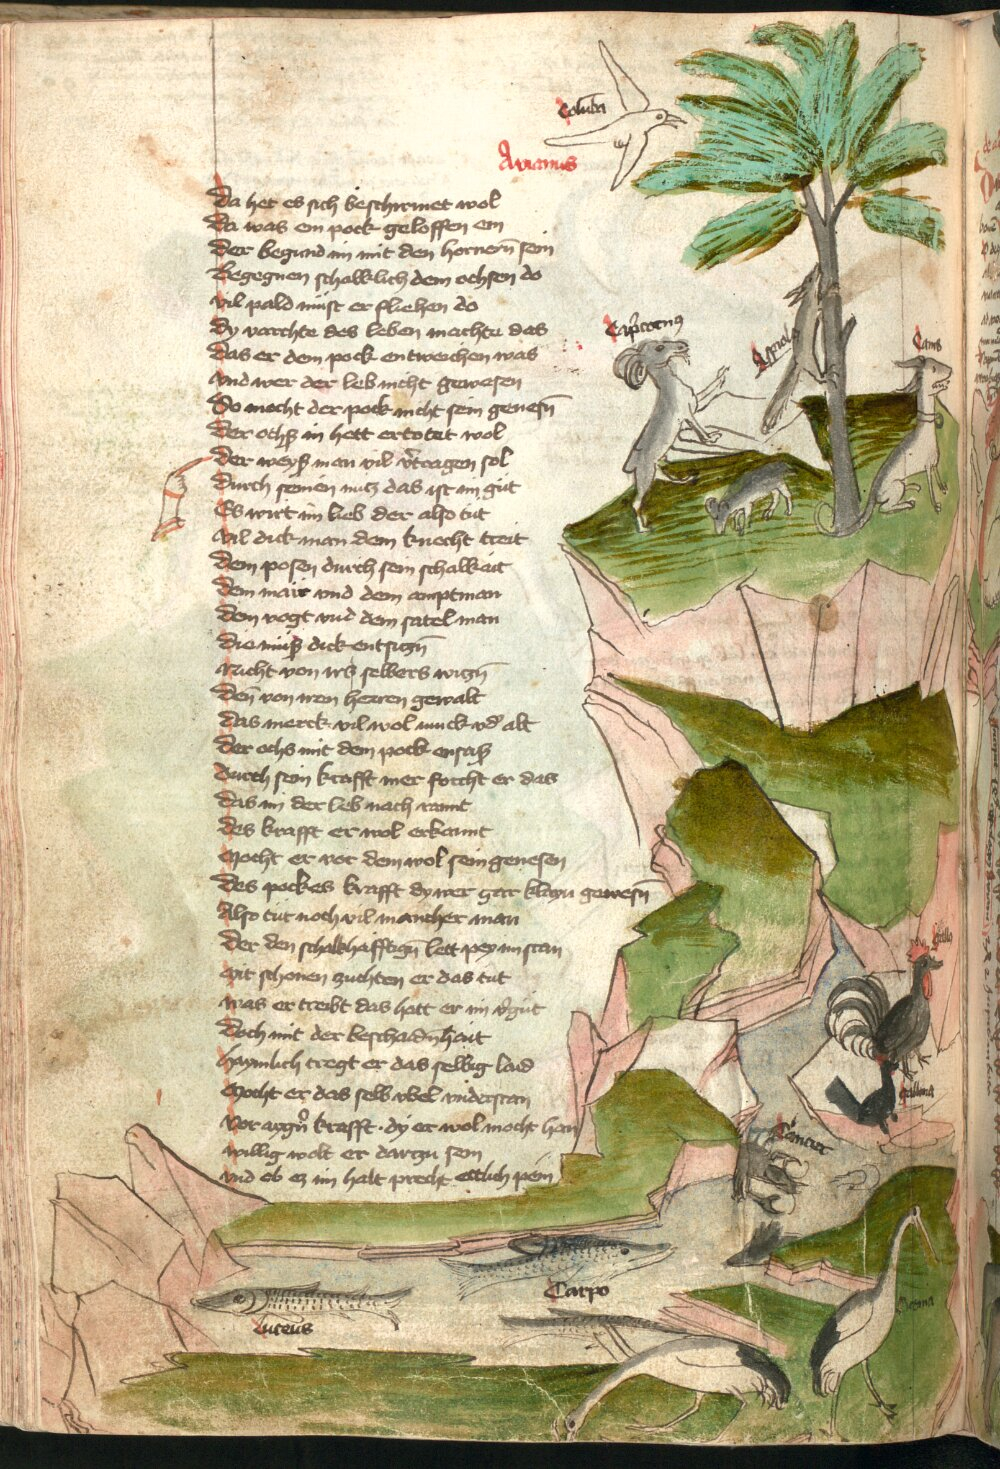 Columba
Avianus
Da het es sich beschirmet wol
Da was ein pock geloffen ein
Der begund im mit den hornern sein
Begegnen schalklich dem ochsen do
vil pald müst er fliehen do
dy vorchte des leben machte das
das er dem pock entweichen was
vnd wer der leb nicht gewesen
So mocht der pock nicht sein genesn̄
Der ochs in hett ertotet wol
der weys man vil vertragen sol
durch seinen nutz das ist im güt
Es wirt im lieb der also tüt
vil dick man dem knecht treit
Dem posen durch sein schalkait
dem mair vnd dem amptman
dem vogt vnd dem satel man
die müss dick entsiczn̄
nicht von irs selbers wiczn̄
den̄ von iren herren gewalt
das merck vil wol vnd alt
der ochs mit dem pock ensass
durch sein krafft mer forcht er das
das im der leb nach rannt
des krafft er wol erkannt
Mocht er vor dem wol sein genesen
Des pockes krafft dy wer gar klayn gewesn̄
Also tüt noch vil mancher man
der den schalkhafftign̄ lett pey im stan
Mit schonen zuchten er das tut
was er treibt das hatt er im vergüt
Doch mit der beschaidn̄hait
haymlich tregt er das selbig laid
Mocht er das selb vbel vnderstan
vor aygn̄ krafft dy er wol mocht han
willig wolt er darczu sein
vnd ob ez im halt precht ettlich pein
Capricornus
Canis
gallus
gallina
Cancer
Carpo
Luceus